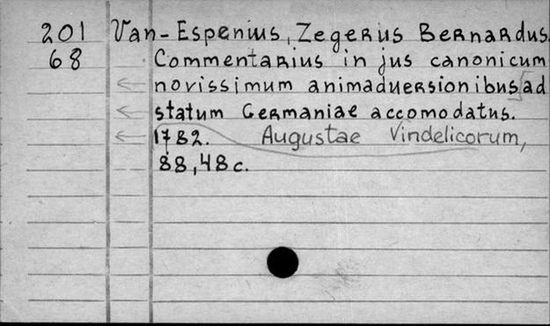 201 Van-Espenius, Zegerus Bernardus.
68 Commentarius in jus canonicum
novissimum animaduersionibus ad
statum Germaniae accomodatus.
1782. Augustae Vindelicorum,
88,48c.